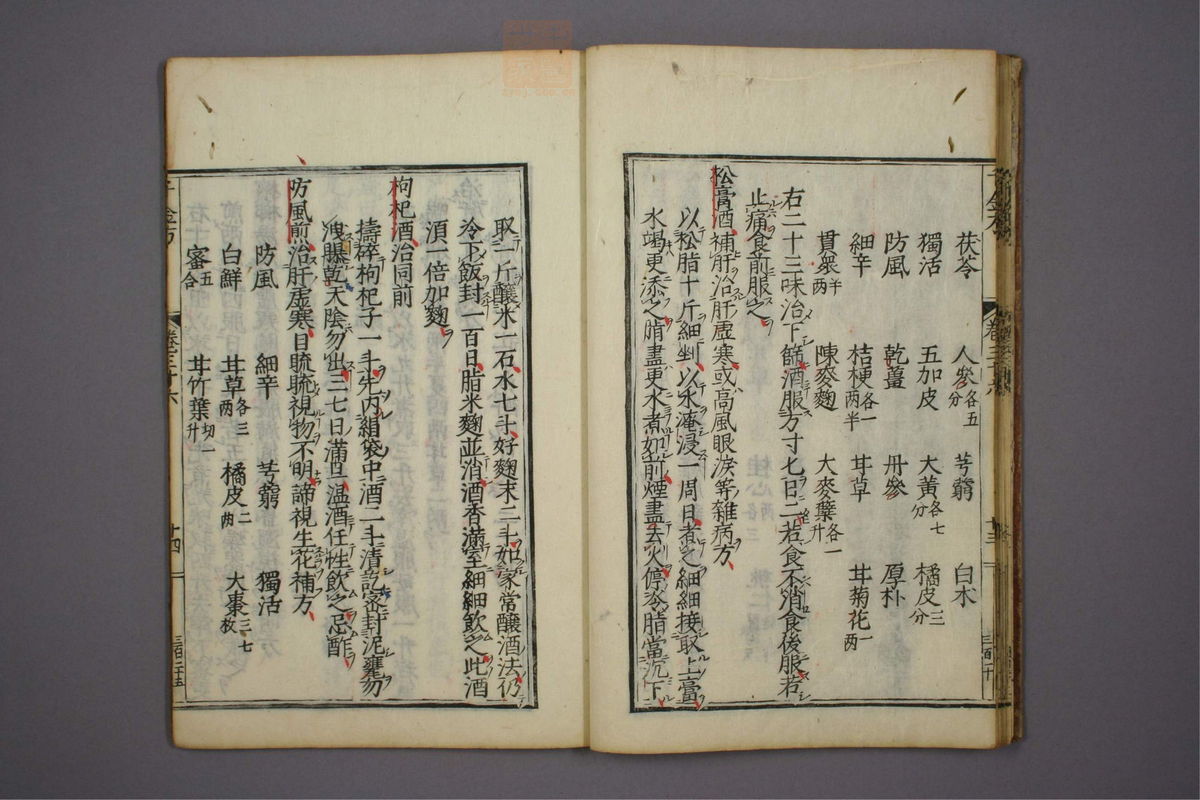 茯苓 人參各五分 芎藭 白木
獨活 五加皮 大黃各七分 橘皮三分
防風 乾薑 丹參 厚朴
細辛 桔梗各一兩半 甘草 甘菊花一兩
貫衆半兩 陳麥麴 大麥蘖各一升
右二十三味治下篩酒服方寸匕日二若食不消食後服若
止痛食前服之
松膏酒補肝治肝虛寒或高風眼淚等雜病方
以松脂十斤細剉以水淹浸一周日煮之細細接取上膏
水竭更添之脂盡更水煮如前煙盡去火停冷脂當沉下
取一斤釀米一石水七斗好麴末二斗如家常釀酒法仍
冷下飯封一百日脂米麴並消酒香滿室細細飲之此酒
須一倍加麴
枸杞酒治同前
擣碎枸杞子一斗先內絹袋中酒二斗漬訖密封泥甕勿
洩曝乾天陰勿出三七日滿旦溫酒任性飲之忌酢
防風煎治肝虛寒目䀮䀮視物不明諦視生花補方
防風 細辛 芎藭 獨活
白鮮 甘草各三兩 橘皮二兩 大棗三七枚
蜜五合 甘竹葉切一升
卷三十六
廿四
三百二十五